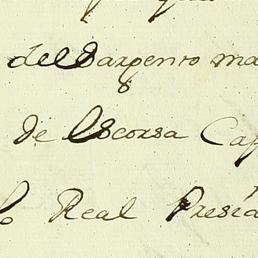 del Sargento ma
de Escorsa Cap
lo Real Presid